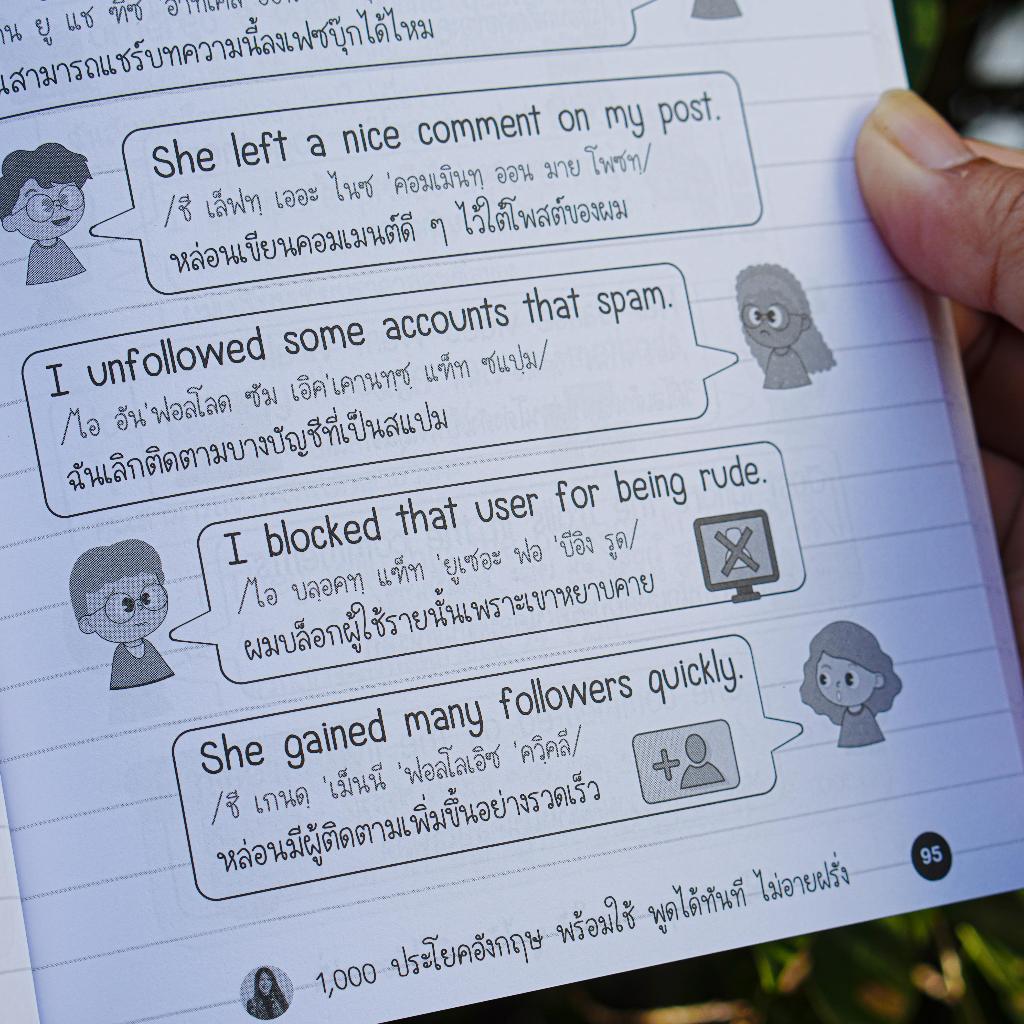 ยู แช ทีซ
นสามารถแชร์บทความนี้ลงเฟซบุ๊กได้ไหม
She left a nice comment on my post.
/ชี เล็ฟทฺ เออะ ไนซ 'คอมเมินทฺ ออน มาย โพซทฺ/
หล่อนเขียนคอมเมนต์ดี ๆ ไว้ใต้โพสต์ของผม
I unfollowed some accounts that spam.
/ไอ อัน'ฟอลโลด ซัม เอิค'เคานทฺซฺ แท็ท ซแปฺม/
ฉันเลิกติดตามบางบัญชีที่เป็นสแปม
I blocked that user for being rude.
/ไอ บลฺอคทฺ แท็ท 'ยูเซอะ ฟอ 'บีอิง รูด/
ผมบล็อกผู้ใช้รายนั้นเพราะเขาหยาบคาย
She gained many followers quickly.
/ชี เกนดฺ 'เม็นนี 'ฟอลโลเอิซ 'ควิฺคลี/
หล่อนมีผู้ติดตามเพิ่มขึ้นอย่างรวดเร็ว
1,000 ประโยคอังกฤษ พร้อมใช้ พูดได้ทันที ไม่อายฝรั่ง
95